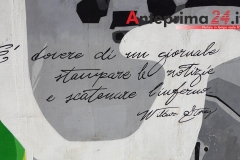 Anteprima24.it
È dovere di un giornale
stampare le notizie
e scatenare l'inferno